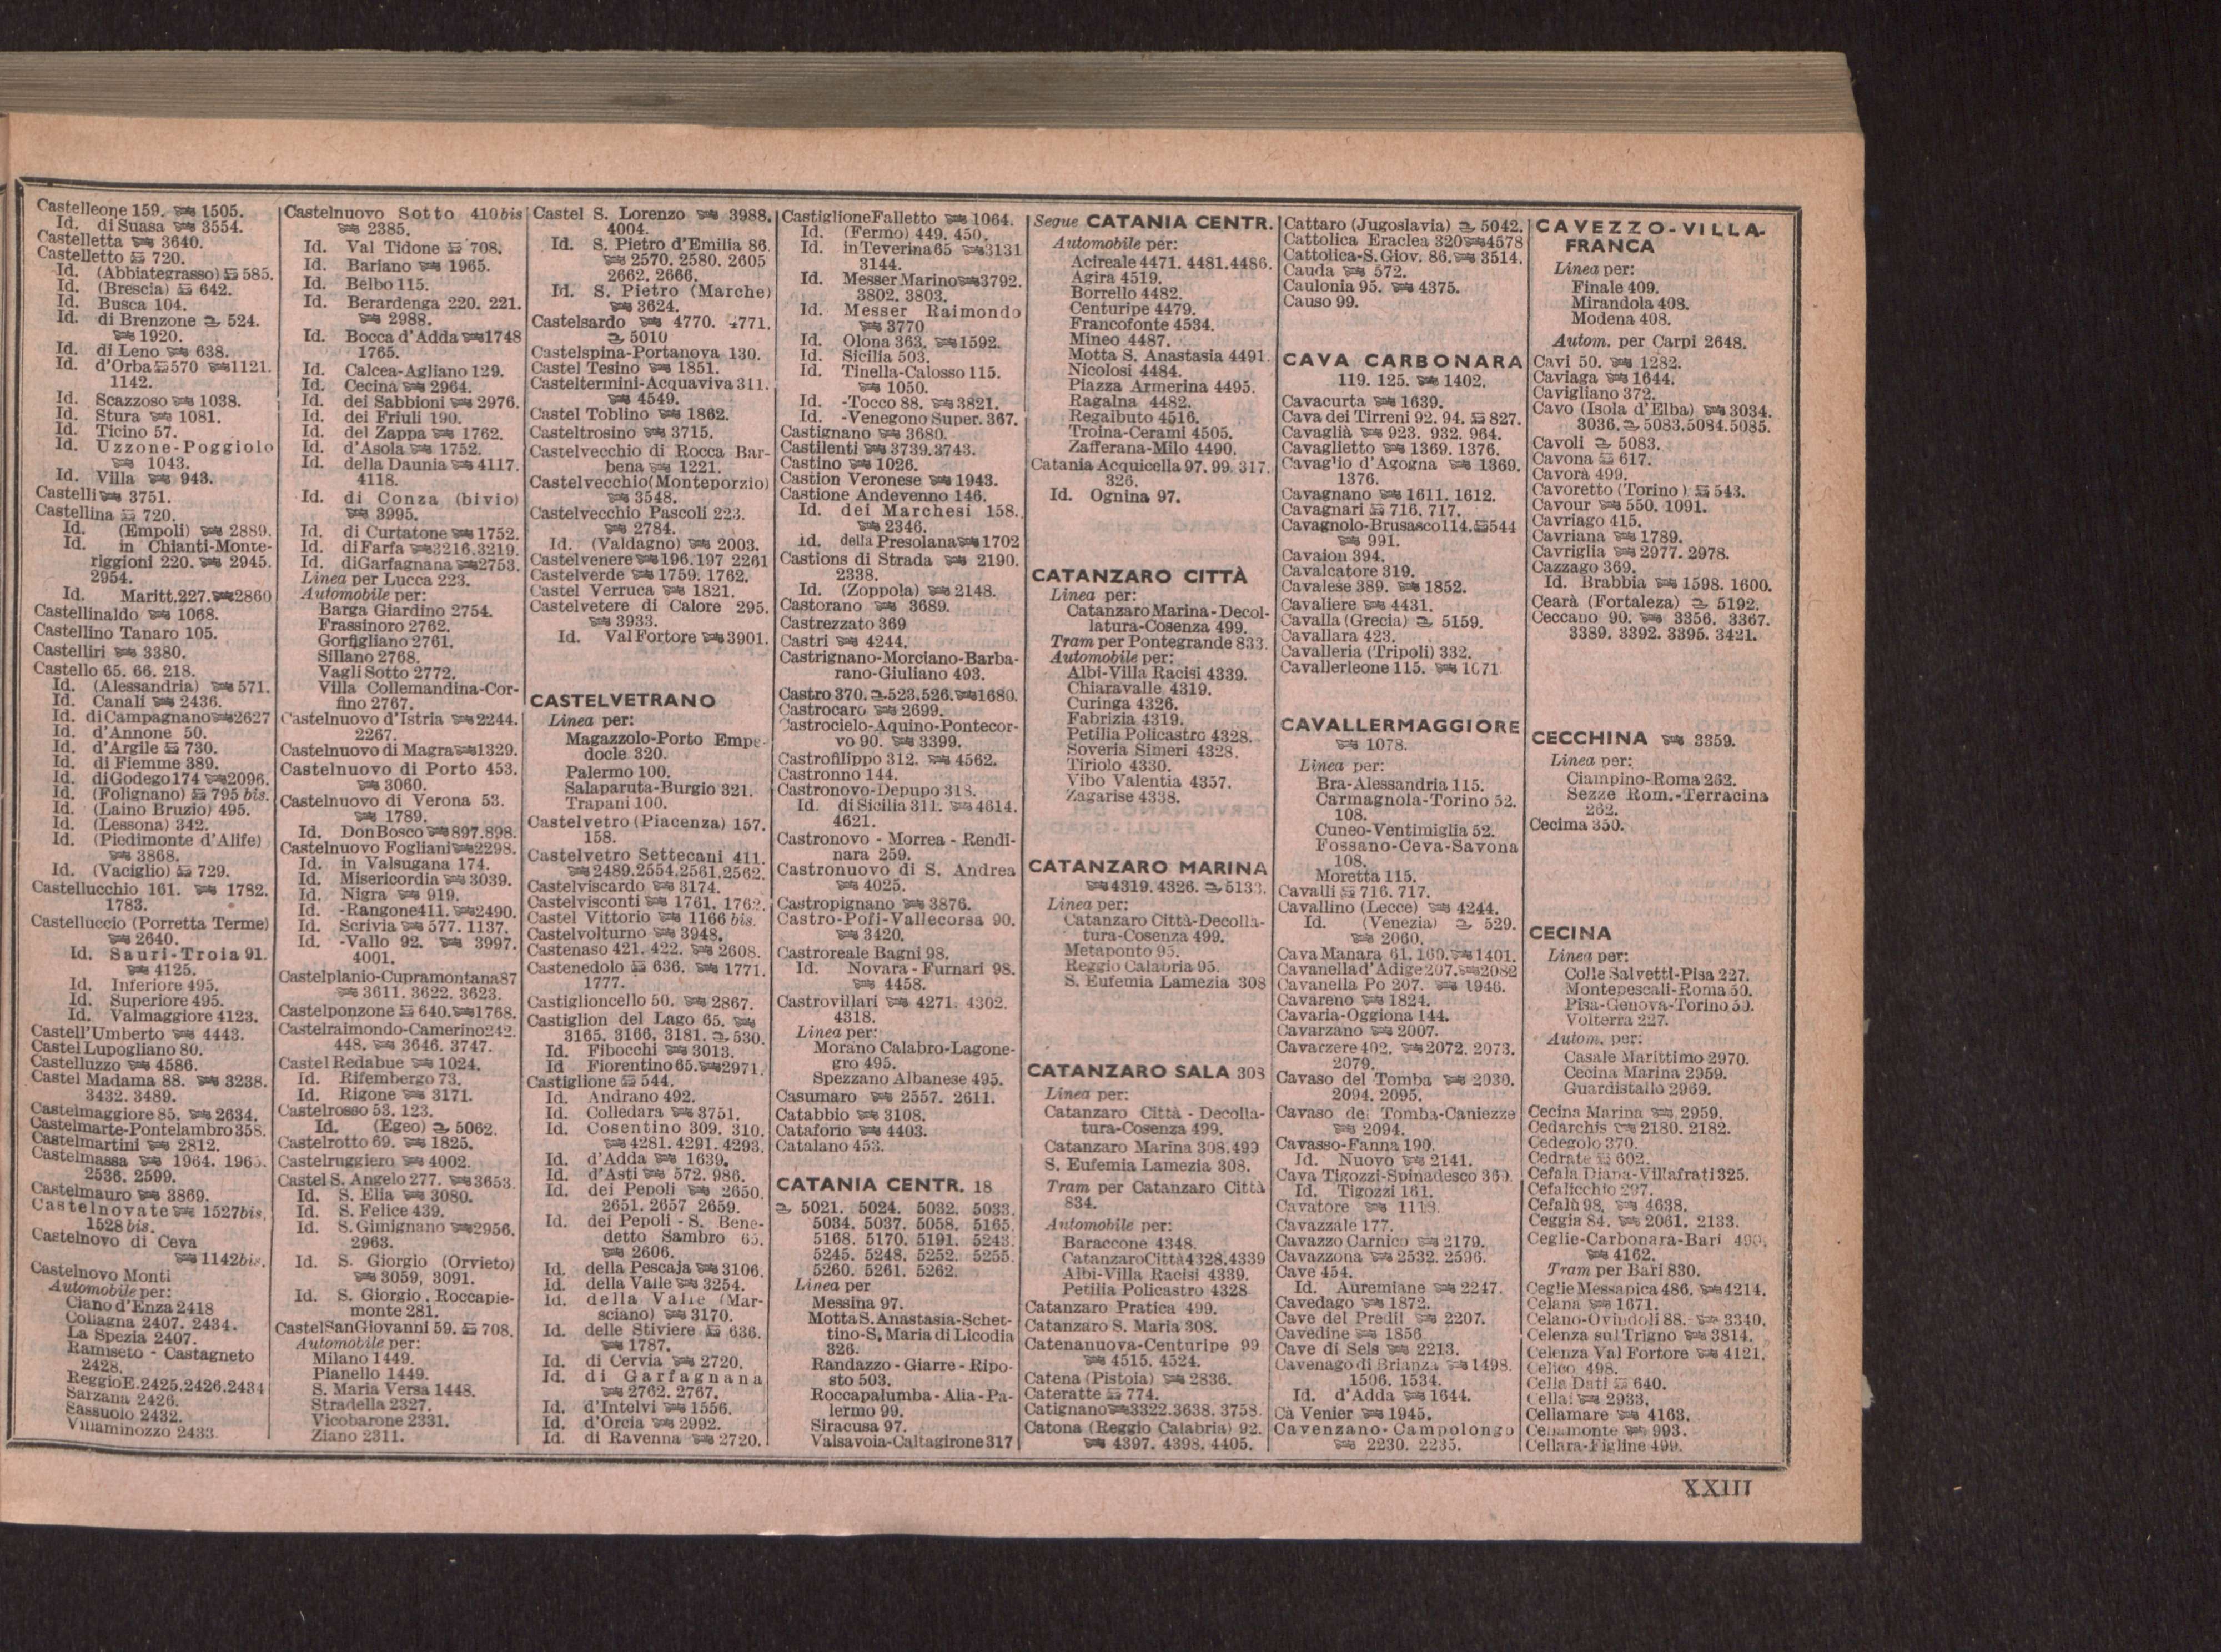 Castelleone 159. 1505.
Id. di Suasa 3554.
Castelletta 3640.
Castelletto 720.
Id. (Abbiategrasso) 585.
Id. (Brescia) 642.
Id. Busca 104.
Id. di Brenzone 524.
1920.
Id. di Leno 638.
Id. d'Orba 570 1121.
1142.
Id. Scazzoso 1038.
Id. Stura 1081.
Id. Ticino 57.
Id. Uzzone-Poggiolo
1043.
Id. Villa 943.
Castelli 3751.
Castellina 720.
Id. (Empoli) 2889.
Id. in Chianti-Monte-
riggioni 220. 2945.
2954.
Id. Maritt. 227. 2860
Castellinaldo 1068.
Castellino Tanaro 105.
Castelliri 3380.
Castello 65. 66. 218.
Id. (Alessandria) 571.
Id. Canali 2436.
Id. di Campagnano 2627
Id. d'Annone 50.
Id. d'Argile 730.
Id. di Fiemme 389.
Id. di Godego 174 2096.
Id. (Folignano) 795 bis.
Id. (Laino Bruzio) 495.
Id. (Lessona) 342.
Id. (Piedimonte d'Alife)
3868.
Id. (Vaciglio) 729.
Castellucchio 161. 1782.
1783.
Castelluccio (Porretta Terme)
2640.
Id. Sauri-Troia 91.
4125.
Id. Inferiore 495.
Id. Superiore 495.
Id. Valmaggiore 4123.
Castell'Umberto 4443.
Castel Lupogliano 80.
Castelluzzo 4586.
Castel Madama 88. 3238.
3432. 3489.
Castelmaggiore 85. 2634.
Castelmarte-Pontelambro 358.
Castelmartini 2812.
Castelmassa 1964. 1965.
2536. 2599.
Castelmauro 3869.
Castelnovate 1527 bis.
1528 bis.
Castelnovo di Ceva
1142 bis.
Castelnovo Monti
Automobile per:
Ciano d'Enza 2418
Collagna 2407. 2434.
La Spezia 2407.
Ramiseto - Castagneto
2428.
Reggio E. 2425. 2426. 2434
Sarzana 2426.
Sassuolo 2432.
Villaminozzo 2433.
Castelnuovo Sotto 410 bis
2385.
Id. Val Tidone 708.
Id. Bariano 1965.
Id. Belbo 115.
Id. Berardenga 220. 221.
2988.
Id. Bocca d'Adda 1748
1765.
Id. Calcea-Agliano 129.
Id. Cecina 2964.
Id. dei Sabbioni 2976.
Id. dei Friuli 190.
Id. del Zappa 1762.
Id. d'Asola 1752.
Id. della Daunia 4117.
4118.
Id. di Conza (bivio)
3995.
Id. di Curtatone 1752.
Id. di Farfa 3216. 3219.
Id. di Garfagnana 2753.
Linea per Lucca 223.
Automobile per:
Barga Giardino 2754.
Frassinoro 2762.
Gorfigliano 2761.
Sillano 2768.
Vagli Sotto 2772.
Villa Collemandina-Cor-
fino 2767.
Castelnuovo d'Istria 2244.
2267.
Castelnuovo di Magra 1329.
Castelnuovo di Porto 453.
3060.
Castelnuovo di Verona 53.
1789.
Id. Don Bosco 897. 898.
Castelnuovo Fogliani 2298.
Id. in Valsugana 174.
Id. Misericordia 3039.
Id. Nigra 919.
Id. -Rangone 411. 2490.
Id. Scrivia 577. 1137.
Id. -Vallo 92. 3997.
4001.
Castelplanio-Cupramontana 87
3611. 3622. 3623.
Castelponzone 640. 1768.
Castelraimondo-Camerino 242.
448. 3646. 3747.
Castel Redabue 1024.
Id. Rifembergo 73.
Id. Rigone 3171.
Castelrosso 53. 123.
Id. (Egeo) 5062.
Castelrotto 69. 1825.
Castelruggiero 4002.
Castel S. Angelo 277. 3653.
Id. S. Elia 3080.
Id. S. Felice 439.
Id. S. Gimignano 2956.
2963.
Id. S. Giorgio (Orvieto)
3059, 3091.
Id. S. Giorgio. Roccapie-
monte 281.
Castel San Giovanni 59. 708.
Automobile per:
Milano 1449.
Pianello 1449.
S. Maria Versa 1448.
Stradella 2327.
Vicobarone 2331.
Ziano 2311.
Castel S. Lorenzo 3988.
4004.
Id. S. Pietro d'Emilia 86.
2570. 2580. 2605
2662. 2666.
Id. S. Pietro (Marche)
3624.
Castelsardo 4770. 4771.
5010
Castelspina-Portanova 130.
Castel Tesino 1851.
Casteltermini-Acquaviva 311.
4549.
Castel Toblino 1862.
Casteltrosino 3715.
Castelvecchio di Rocca Bar-
bena 1221.
Castelvecchio (Monteporzio)
3548.
Castelvecchio Pascoli 223.
2784.
Id. (Valdagno) 2003.
Castelvenere 196. 197 2261
Castelverde 1759. 1762.
Castel Verruca 1821.
Castelvetere di Calore 295.
3933.
Id. Val Fortore 3901.
CASTELVETRANO
Linea per:
Magazzolo-Porto Empe-
docle 320.
Palermo 100.
Salaparuta-Burgio 321.
Trapani 100.
Castelvetro (Piacenza) 157.
158.
Castelvetro Settecani 411.
2489. 2554. 2561. 2562.
Castelviscardo 3174.
Castelvisconti 1761. 1762.
Castel Vittorio 1166 bis.
Castelvolturno 3948.
Castenaso 421. 422. 2608.
Castenedolo 636. 1771.
1777.
Castiglioncello 50. 2867.
Castiglion del Lago 65.
3165. 3166. 3181. 530.
Id. Fibocchi 3013.
Id Fiorentino 65. 2971.
Castiglione 544.
Id. Andrano 492.
Id. Colledara 3751.
Id. Cosentino 309. 310.
4281. 4291. 4293.
Id. d'Adda 1639.
Id. d'Asti 572. 986.
Id. dei Pepoli 2650.
2651. 2657 2659.
Id. dei Pepoli - S. Bene-
detto Sambro 65.
2606.
Id. della Pescaja 3106.
Id. della Valle 3254.
Id. della Valle (Mar-
sciano) 3170.
Id. delle Stiviere 636.
1787.
Id. di Cervia 2720.
Id. di Garfagnana
2762. 2767.
Id. d'Intelvi 1556.
Id. d'Orcia 2992.
Id. di Ravenna 2720.
Castiglione Falletto 1064.
Id. (Fermo) 449. 450.
Id. in Teverina 65 3131
3144.
Id. Messer Marino 3792.
3802. 3803.
Id. Messer Raimondo
3770
Id. Olona 363. 1592.
Id. Sicilia 503.
Id. Tinella-Calosso 115.
1050.
Id. -Tocco 88. 3821.
Id. -Venegono Super. 367.
Castignano 3680.
Castilenti 3739. 3743.
Castino 1026.
Castion Veronese 1943.
Castione Andevenno 146.
Id. dei Marchesi 158.
2346.
Id. della Presolana 1702
Castions di Strada 2190.
2338.
Id. (Zoppola) 2148.
Castorano 3689.
Castrezzato 369
Castri 4244.
Castrignano-Morciano-Barba-
rano-Giuliano 493.
Castro 370. 523. 526. 1680.
Castrocaro 2699.
Castrocielo-Aquino-Pontecor-
vo 90. 3399.
Castrofilippo 312. 4562.
Castronno 144.
Castronovo-Depupo 318.
Id. di Sicilia 311. 4614.
4621.
Castronovo - Morrea - Rendi-
nara 259.
Castronuovo di S. Andrea
4025.
Castropignano 3876.
Castro-Pofi-Vallecorsa 90.
3420.
Castroreale Bagni 98.
Id. Novara - Furnari 98.
4458.
Castrovillari 4271. 4302.
4318.
Linea per:
Morano Calabro-Lagone-
gro 495.
Spezzano Albanese 495.
Casumaro 2557. 2611.
Catabbio 3108.
Cataforio 4403.
Catalano 453.
CATANIA CENTR. 18
5021. 5024. 5032. 5033.
5034. 5037. 5058. 5165.
5168. 5170. 5191. 5243.
5245. 5248. 5252. 5255.
5260. 5261. 5262.
Linea per
Messina 97.
Motta S. Anastasia-Schet-
tino-S. Maria di Licodia
326.
Randazzo - Giarre - Ripo-
sto 503.
Roccapalumba - Alia - Pa-
lermo 99.
Siracusa 97.
Valsavoia-Caltagirone 317
Segue CATANIA CENTR.
Automobile per:
Acireale 4471. 4481. 4486.
Agira 4519.
Borrello 4482.
Centuripe 4479.
Francofonte 4534.
Mineo 4487.
Motta S. Anastasia 4491.
Nicolosi 4484.
Piazza Armerina 4495.
Ragalna 4482.
Regalbuto 4516.
Troina-Cerami 4505.
Zafferana-Milo 4490.
Catania Acquicella 97. 99. 317.
326.
Id. Ognina 97.
CATANZARO CITTÀ
Linea per:
Catanzaro Marina - Decol-
latura-Cosenza 499.
Tram per Pontegrande 833.
Automobile per:
Albi-Villa Racisi 4339.
Chiaravalle 4319.
Curinga 4326.
Fabrizia 4319.
Petilia Policastro 4328.
Soveria Simeri 4328.
Tiriolo 4330.
Vibo Valentia 4357.
Zagarise 4338.
CATANZARO MARINA
4319. 4326. 5133.
Linea per:
Catanzaro Città-Decolla-
tura-Cosenza 499.
Metaponto 95.
Reggio Calabria 95.
S. Eufemia Lamezia 308
CATANZARO SALA 308
Linea per:
Catanzaro Città - Decolla-
tura-Cosenza 499.
Catanzaro Marina 308. 499
S. Eufemia Lamezia 308.
Tram per Catanzaro Città
834.
Automobile per:
Baraccone 4348.
Catanzaro Città 4328. 4339
Albi-Villa Racisi 4339.
Petilia Policastro 4328
Catanzaro Pratica 499.
Catanzaro S. Maria 308.
Catenanuova-Centuripe 99
4515. 4524.
Catena (Pistoia) 2836.
Cateratte 774.
Catignano 3322. 3638. 3758.
Catona (Reggio Calabria) 92.
4397. 4398. 4405.
Cattaro (Jugoslavia) 5042.
Cattolica Eraclea 320 4578
Cattolica-S. Giov. 86. 3514.
Cauda 572.
Caulonia 95. 4375.
Causo 99.
CAVA CARBONARA
119. 125. 1402.
Cavacurta 1639.
Cava dei Tirreni 92. 94. 827.
Cavaglià 923. 932. 964.
Cavaglietto 1369. 1376.
Cavaglio d'Agogna 1369.
1376.
Cavagnano 1611. 1612.
Cavagnari 716. 717.
Cavagnolo-Brusasco 114. 544
991.
Cavaion 394.
Cavalcatore 319.
Cavalese 389. 1852.
Cavaliere 4431.
Cavalla (Grecia) 5159.
Cavallara 423.
Cavalleria (Tripoli) 332.
Cavallerleone 115. 1071
CAVALLERMAGGIORE
1078.
Linea per:
Bra-Alessandria 115.
Carmagnola-Torino 52.
108.
Cuneo-Ventimiglia 52.
Fossano-Ceva-Savona
108.
Moretta 115.
Cavalli 716. 717.
Cavallino (Lecce) 4244.
Id. (Venezia) 529.
2060.
Cava Manara 61. 160. 1401.
Cavanella d'Adige 207. 2082
Cavanella Po 207. 1946.
Cavareno 1824.
Cavaria-Oggiona 144.
Cavarzano 2007.
Cavarzere 402. 2072. 2073.
2079.
Cavaso del Tomba 2030.
2094. 2095.
Cavaso del Tomba-Caniezze
2094.
Cavasso-Fanna 190.
Id. Nuovo 2141.
Cava Tigozzi-Spinadesco 369.
Id. Tigozzi 161.
Cavatore 1118.
Cavazzale 177.
Cavazzo Carnico 2179.
Cavazzona 2532. 2596.
Cave 454.
Id. Auremiane 2247.
Cavedago 1872.
Cave del Predil 2207.
Cavedine 1856
Cave di Sels 2213.
Cavenago di Brianza 1498.
1506. 1534.
Id. d'Adda 1644.
Cà Venier 1945.
Cavenzano-Campolongo
2230. 2235.
CAVEZZO-VILLA-
FRANCA
Linea per:
Finale 409.
Mirandola 408.
Modena 408.
Autom. per Carpi 2648.
Cavi 50. 1282.
Caviaga 1644.
Cavigliano 372.
Cavo (Isola d'Elba) 3034.
3036. 5083. 5084. 5085.
Cavoli 5083.
Cavona 617.
Cavorà 499.
Cavoretto (Torino) 543.
Cavour 550. 1091.
Cavriago 415.
Cavriana 1789.
Cavriglia 2977. 2978.
Cazzago 369.
Id. Brabbia 1598. 1600.
Cearà (Fortaleza) 5192.
Ceccano 90. 3356. 3367.
3389. 3392. 3395. 3421.
CECCHINA 3359.
Linea per:
Ciampino-Roma 262.
Sezze Rom.-Terracina
262.
Cecima 350.
CECINA
Linea per:
Colle Salvetti-Pisa 227.
Montepescali-Roma 50.
Pisa-Genova-Torino 50.
Volterra 227.
Autom. per:
Casale Marittimo 2970.
Cecina Marina 2959.
Guardistallo 2969.
Cecina Marina 2959.
Cedarchis 2180. 2182.
Cedegolo 370.
Cedrate 602.
Cefala Diana-Villafrati 325.
Cefalicchio 297.
Cefalù 98. 4638.
Ceggia 84. 2061. 2133.
Ceglie-Carbonara-Bari 499.
4162.
Tram per Bari 830.
Ceglie Messapica 486. 4214.
Celana 1671.
Celano-Ovindoli 88. 3340.
Celenza sul Trigno 3814.
Celenza Val Fortore 4121.
Celico 498.
Cella Dati 640.
Cellai 2933.
Cellamare 4163.
Cellamonte 993.
Cellara-Figline 499.
XXIII